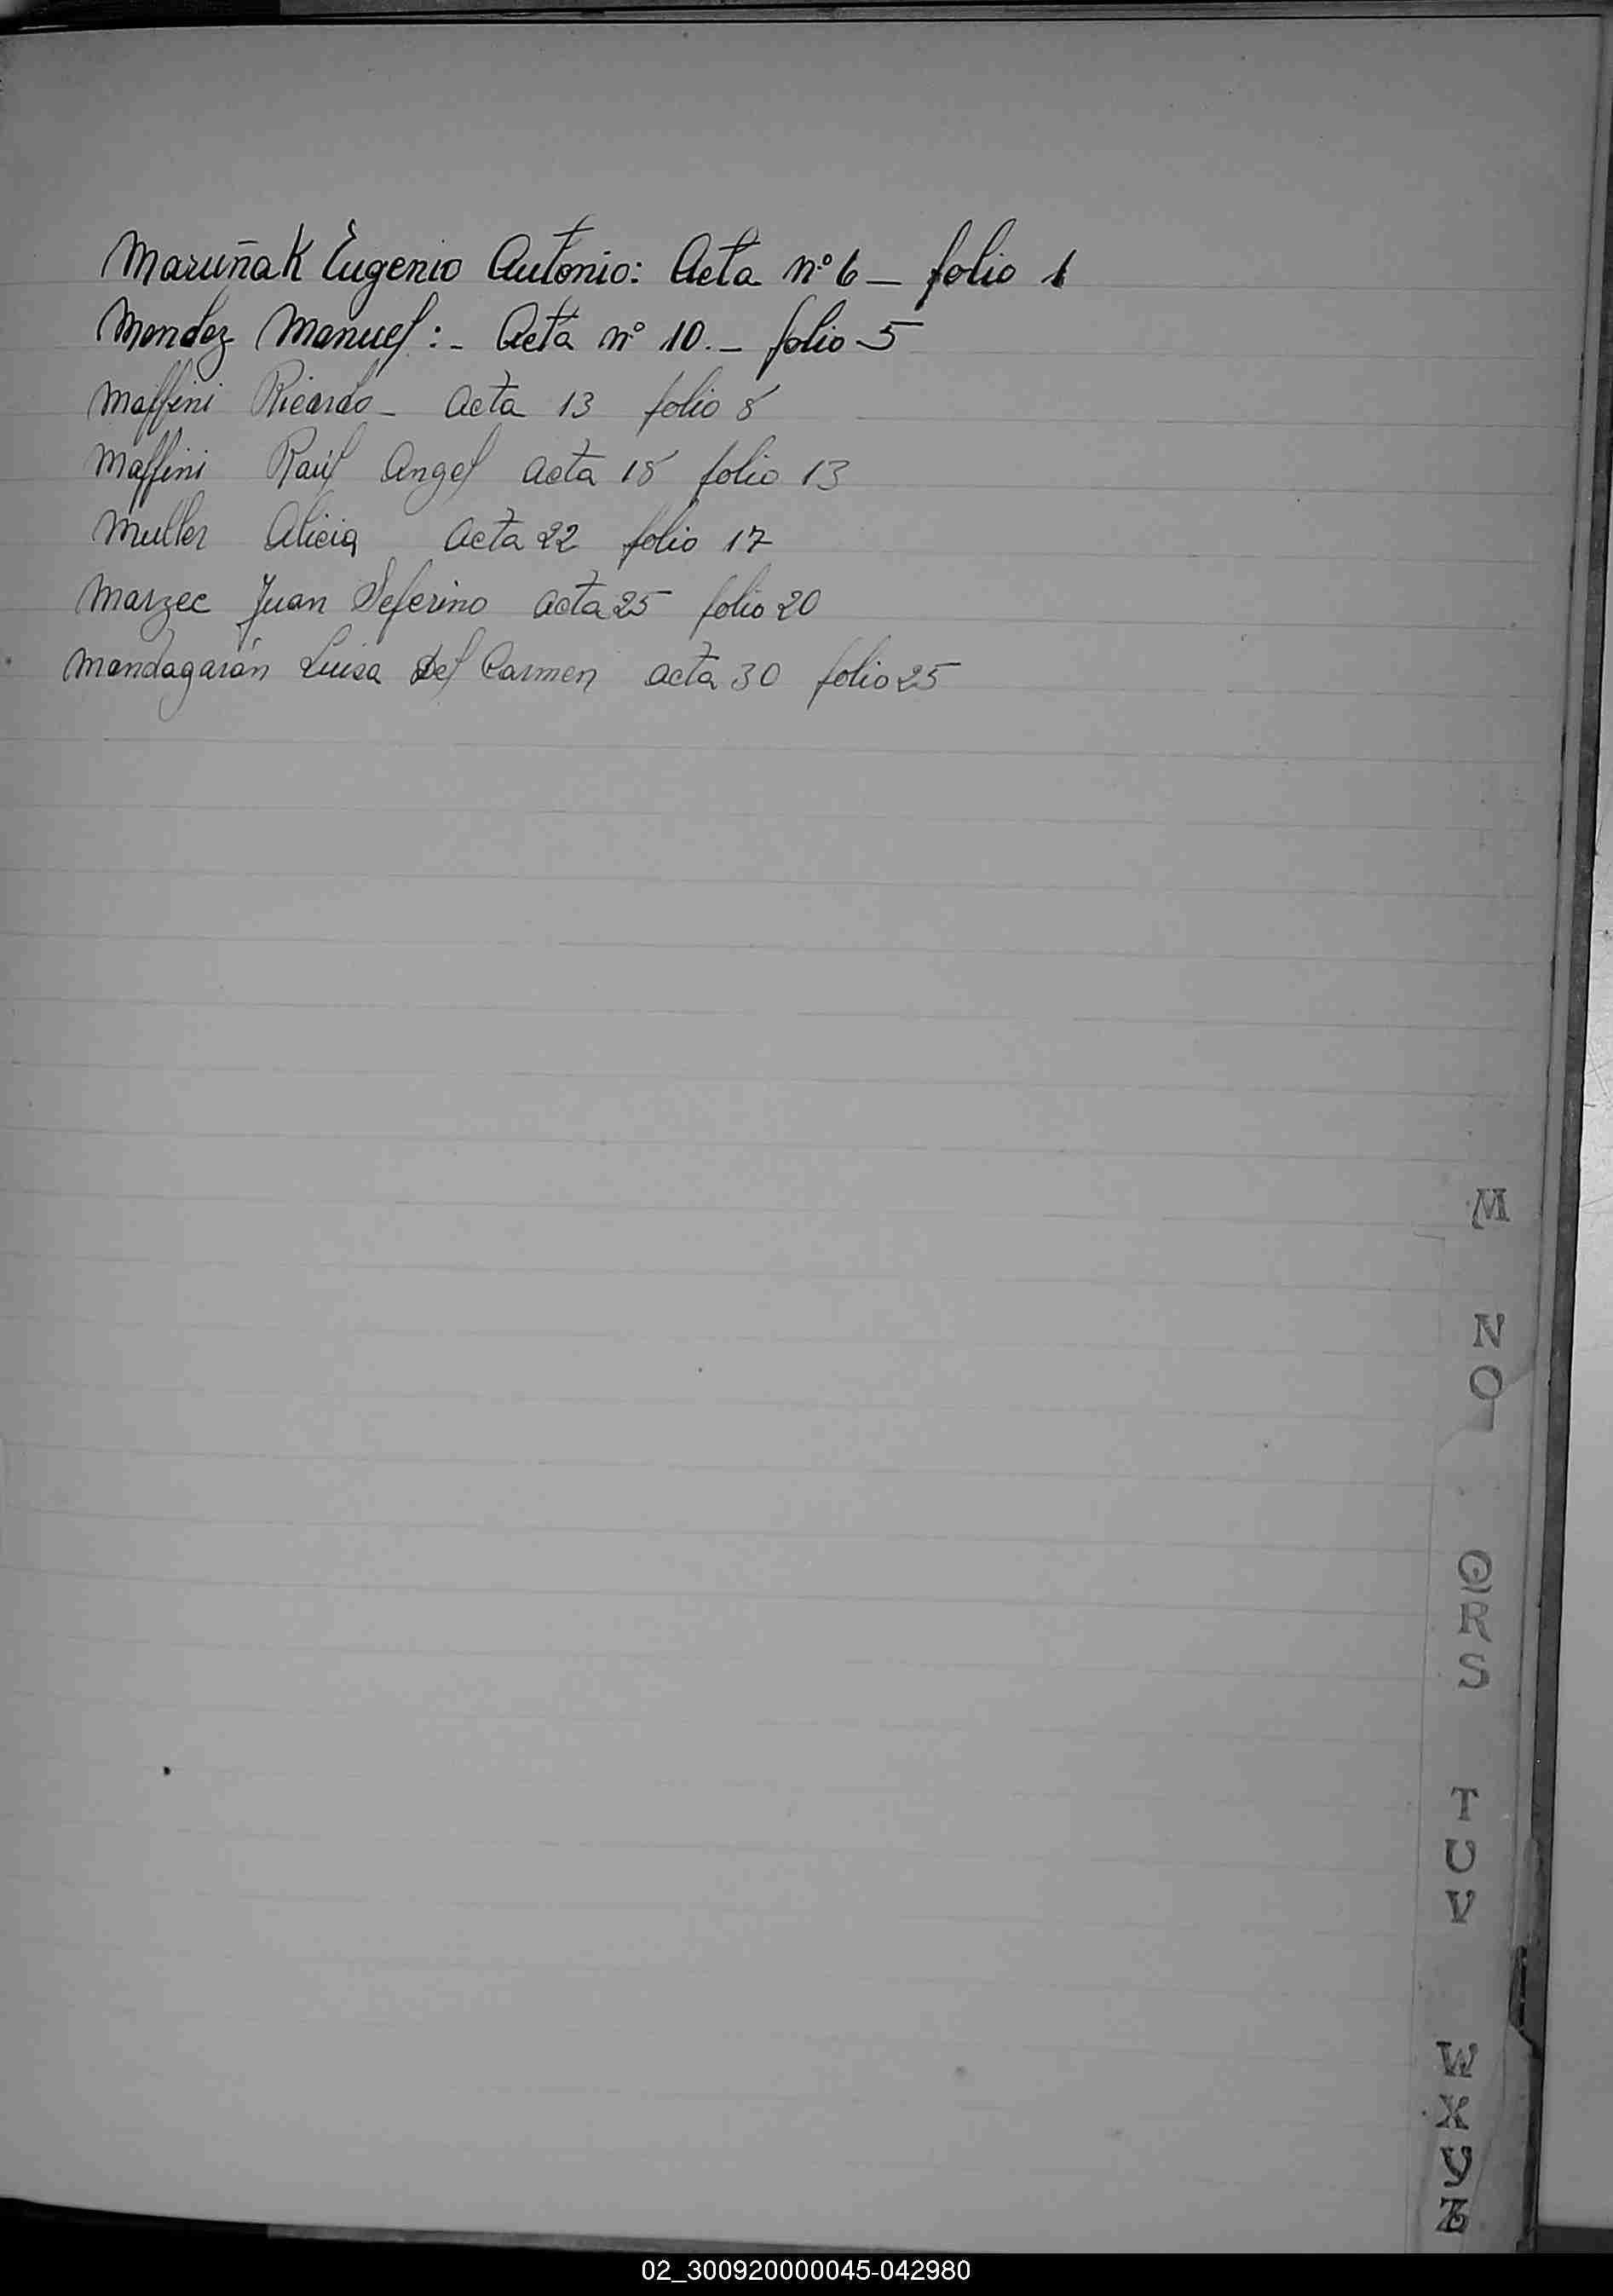 Maruñak Eugenio Antonio: Acta nº 6 — folio 1
Mendez Manuel:- Acta nº 10.— folio 5
Maffini Ricardo - Acta 13 folio 8
Maffini Raúl Angel acta 18 folio 13
Muller Alicia Acta 22 folio 17
Marzec Juan Seferino acta 25 folio 20
Mondagarán Luisa Del Carmen acta 30 folio 25
M
N
O
Q
R
S
T
U
V
W
X
Y
Z
02_300920000045-042980